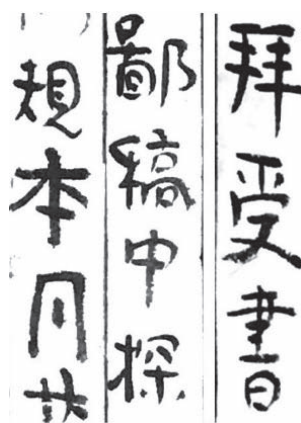 拜受書
鄙稿中探
規本月廿